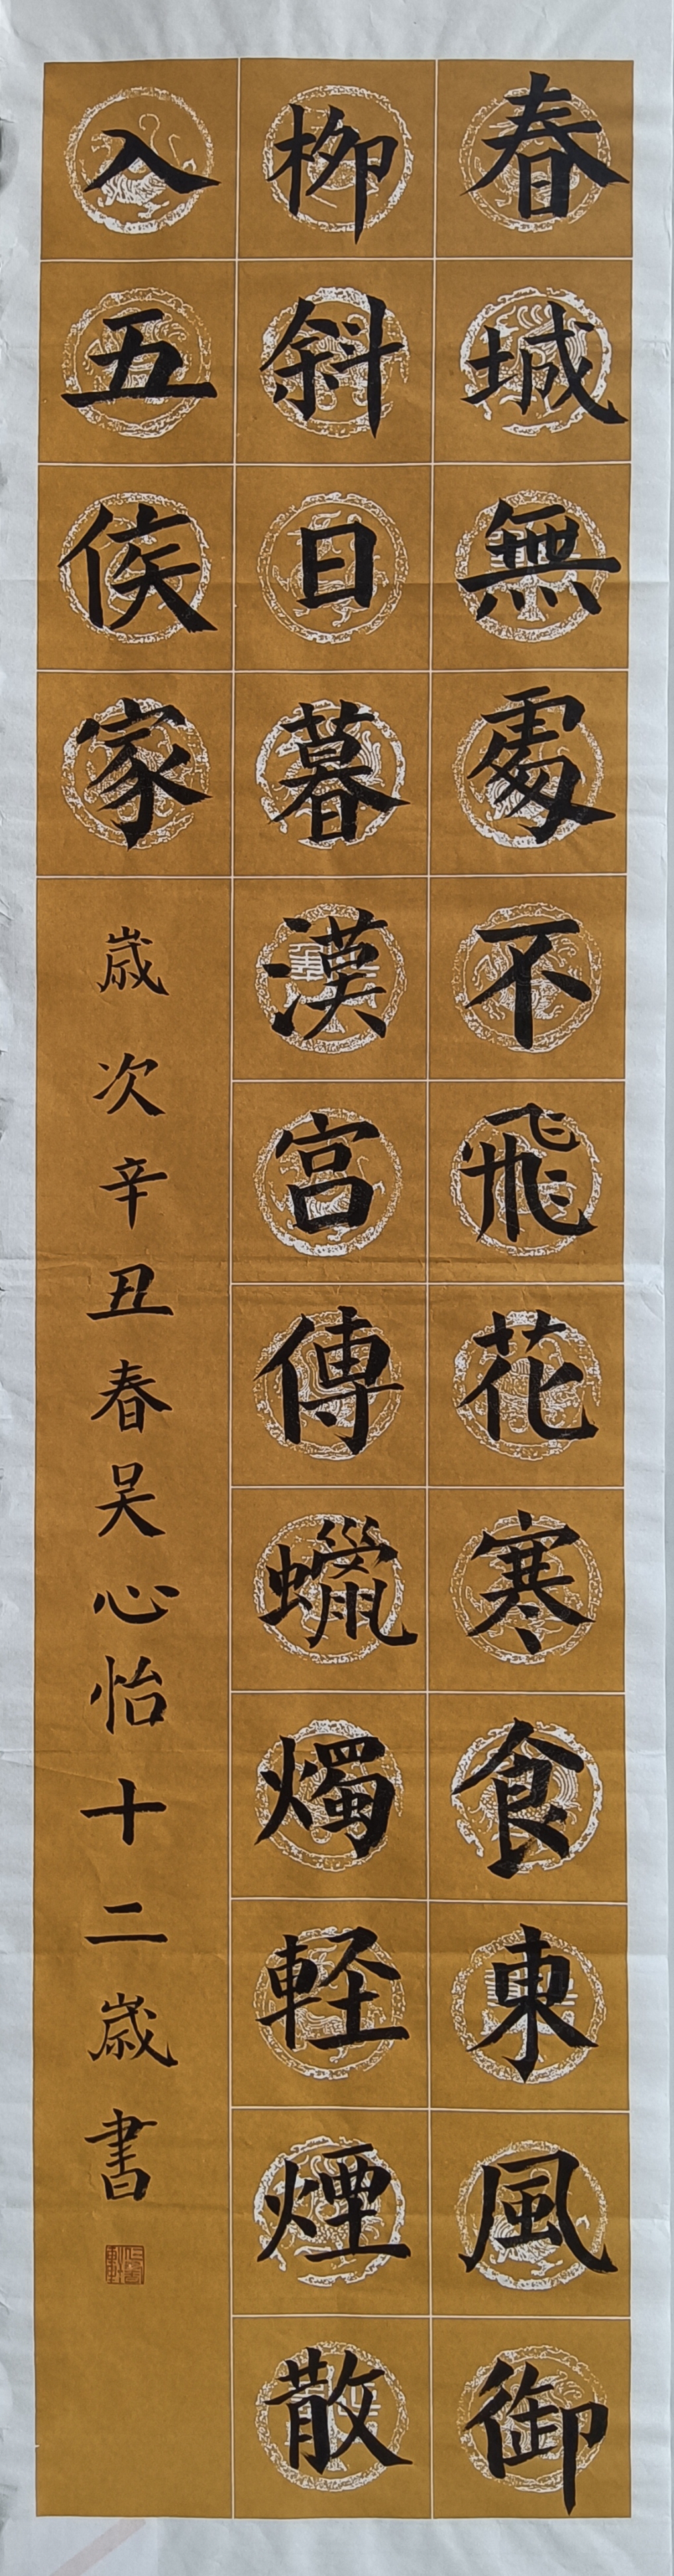 春城無處不飛花寒食東風御
柳斜日暮漢宮傳蠟燭軽煙散
入五侯家
歲次辛丑春吴心怡十二歲書